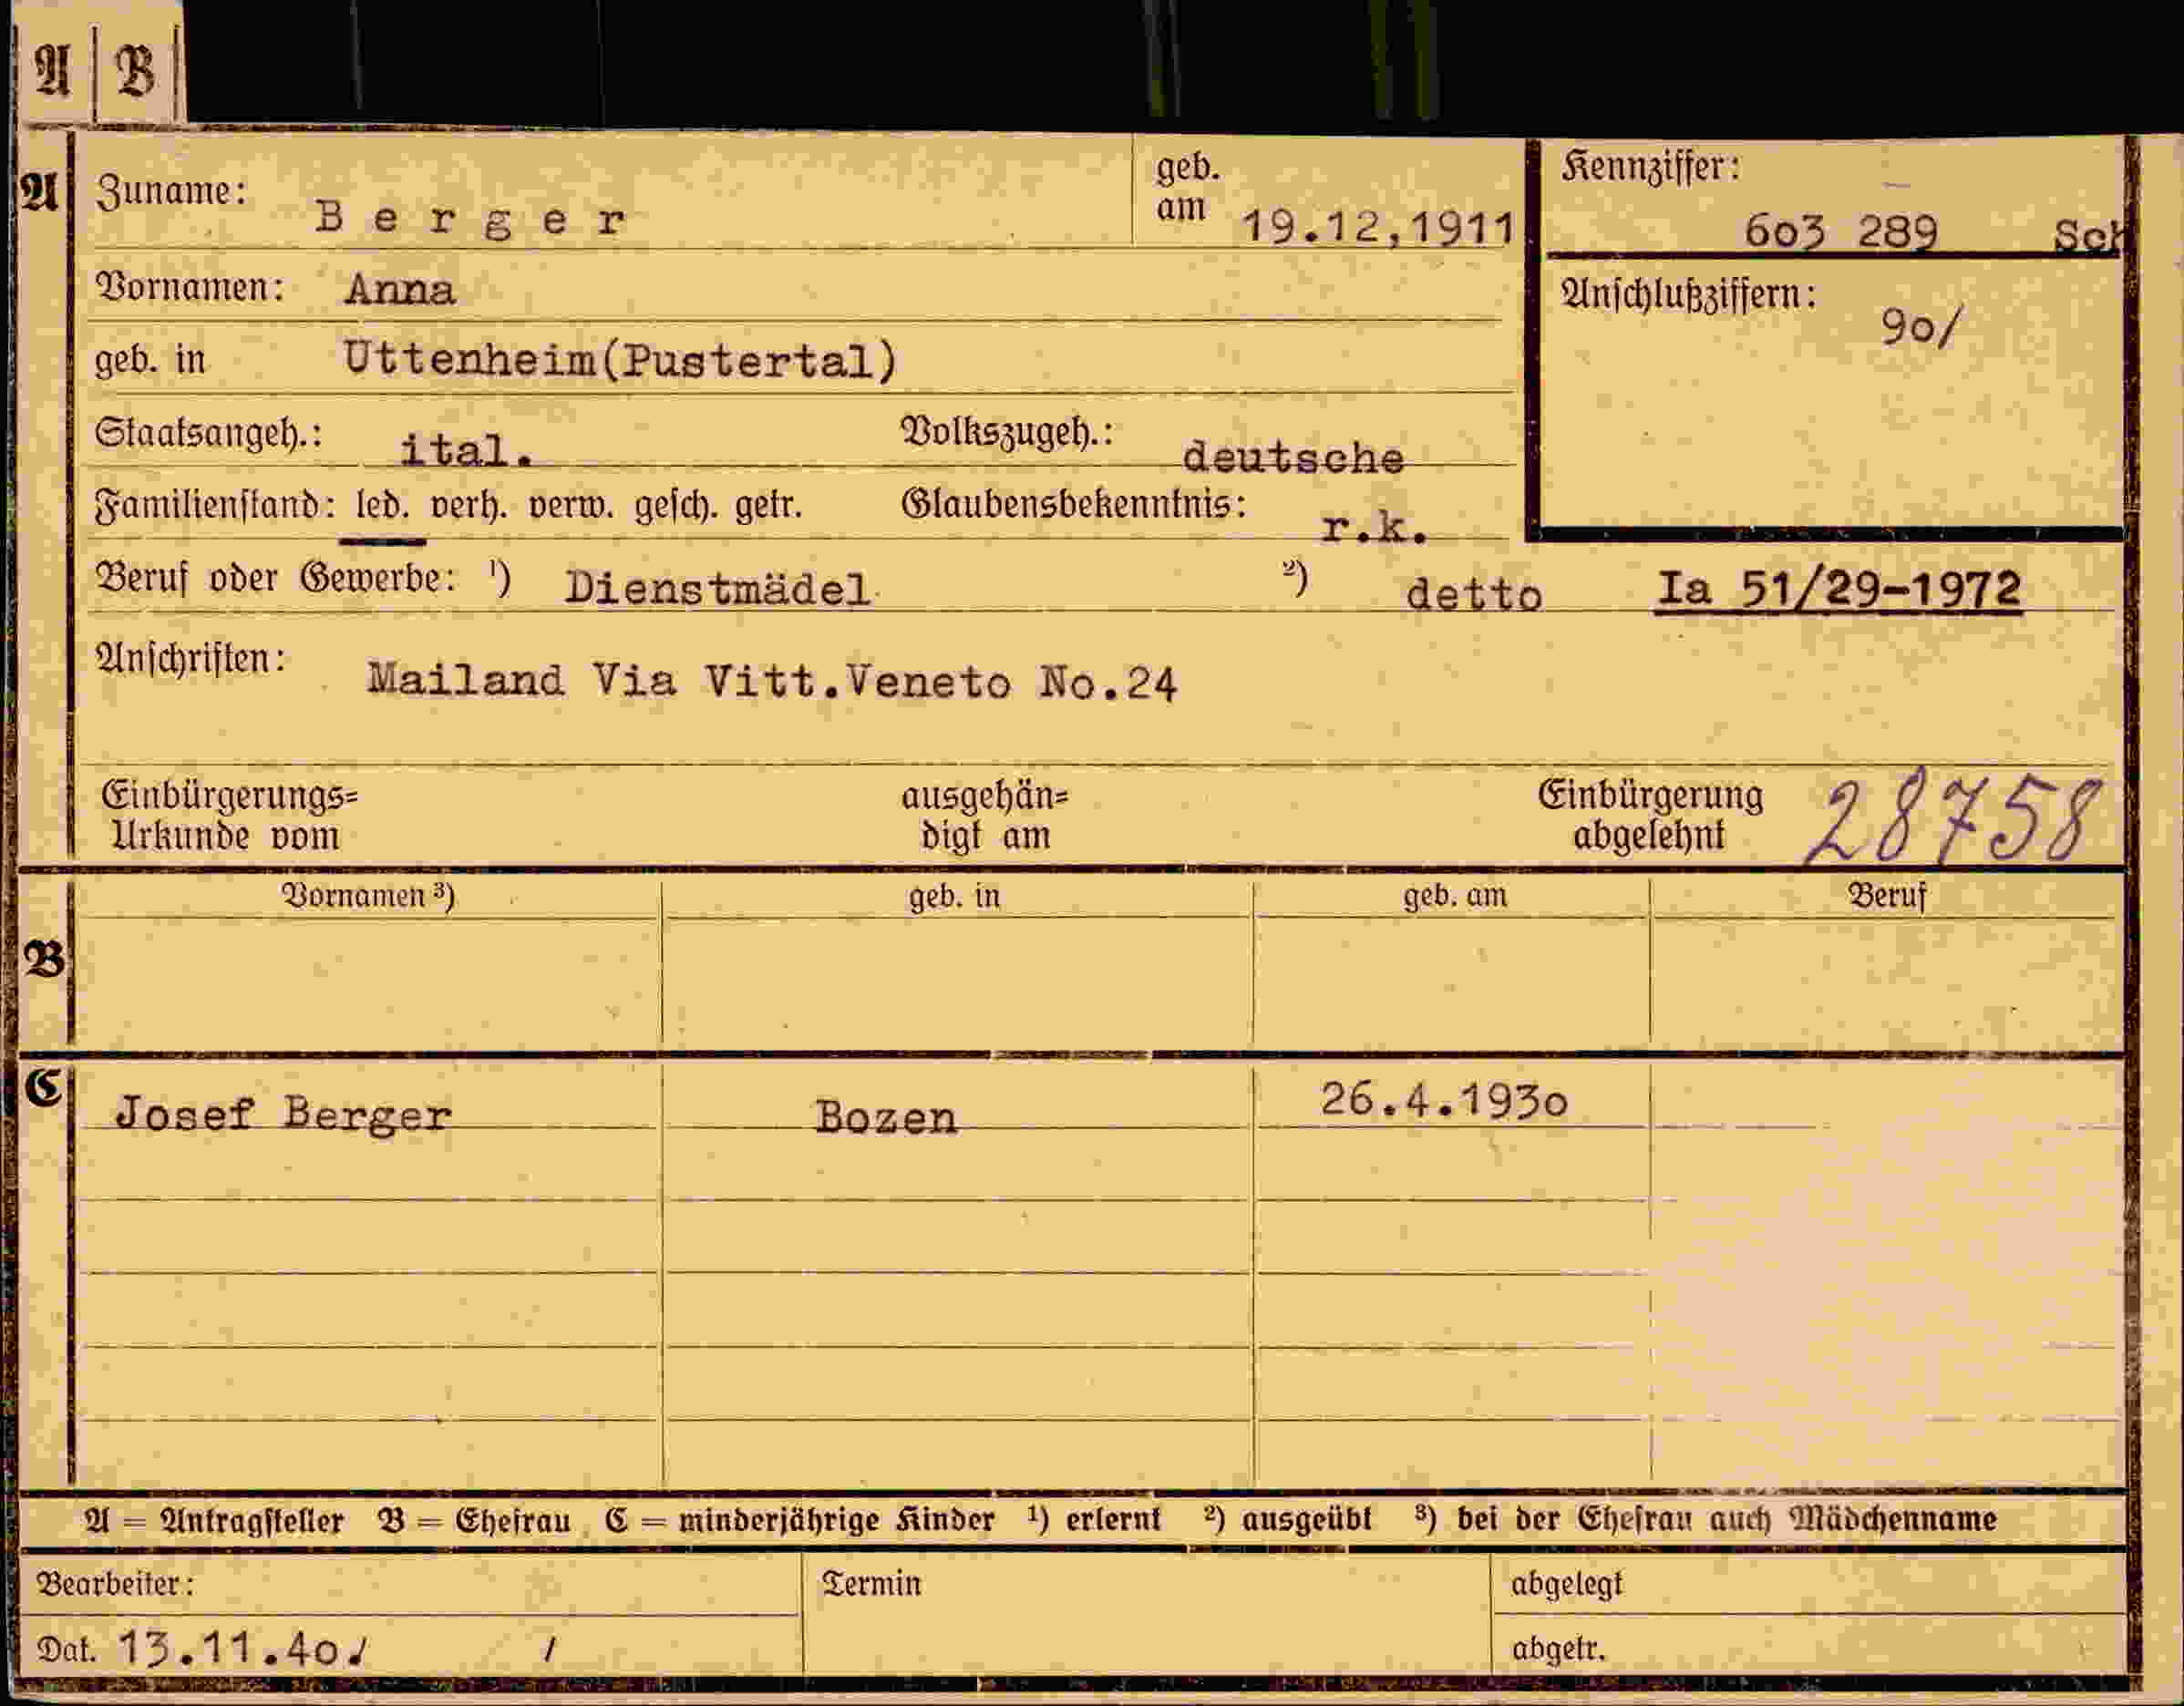 A B
A
Zuname: Berger geb. am 19.12,1911
Kennziffer: 603 289 Sch
Vornamen: Anna
Anschlußziffern: 90/
geb. in Uttenheim(Pustertal)
Staatsangeh.: ital. Volkszugeh.: deutsche
Familienstand: led. verh. verw. gesch. getr. Glaubensbekenntnis: r.k.
Beruf oder Gewerbe: ¹) Dienstmädel ²) detto Ia 51/29-1972
Anschriften: Mailand Via Vitt.Veneto No.24
Einbürgerungs= ausgehän= Einbürgerung 28758
Urkunde vom digt am abgelehnt
B
Vornamen ³) geb. in geb. am Beruf
C
Josef Berger Bozen 26.4.1930
A = Antragsteller B = Ehefrau C = minderjährige Kinder ¹) erlernt ²) ausgeübt ³) bei der Ehefrau auch Mädchenname
Bearbeiter: Termin abgelegt
Dat. 13.11.40./ / abgetr.